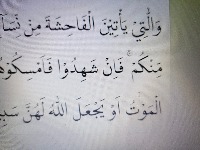 وَالّٰتِي يَأْتِيْنَ الْفَاحِشَةَ مِنْ نِسَآ
مِنْكُمْ ۚ فَاِنْ شَهِدُوْا فَاَمْسِكُوْهُ
الْمَوْتُ اَوْ يَجْعَلَ اللّٰهُ لَهُنَّ سَبِي